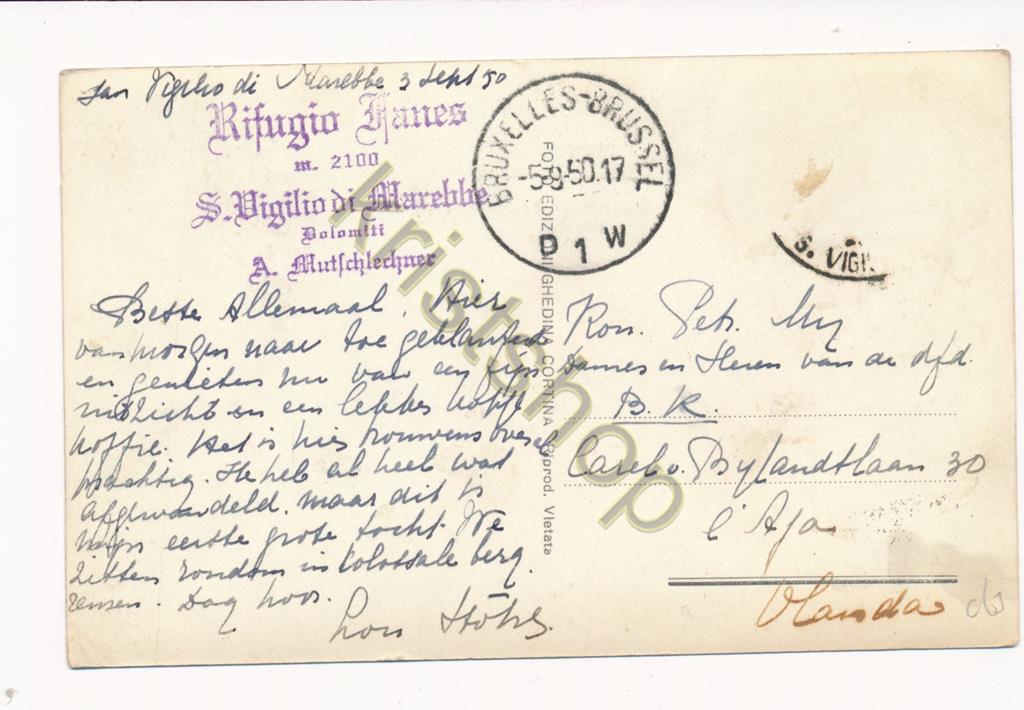 San Vigilio di Marebbe 3 Sept 50
Rifugio Fanes
m. 2100
S. Vigilio di Marebbe
Dolomiti
A. Mutschlechner
BRUXELLES-BRUSSEL
-5-9-50.17
D 1 W
S. VIGI
Beste Allemaal, Hier
vanmorgen naar toe geklauterd
en genieten nu van een fijn
uitzicht en een lekker kopje
koffie. Het is hier trouwens overal
prachtig. Ik heb al heel wat
afgewandeld, maar dit is
mijn eerste grote tocht. We
zitten rondom in kolossale berg
reuzen. Dag hoor.
Kon. Petr. My
Dames en Heren van de afd.
B.K.
Carel v. Bylandtlaan 30
l'Aja
Olanda
FOTO EDIZIONI GHEDINA CORTINA Riprod. Vietata
Kristshop